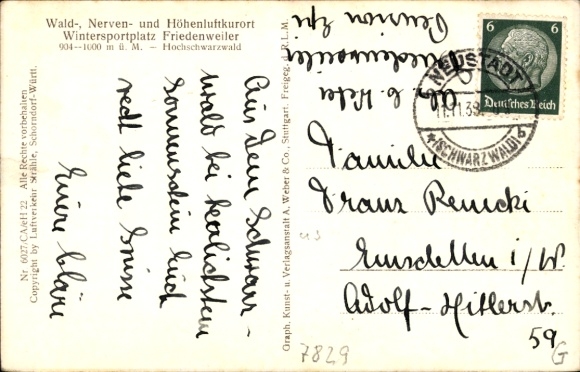 Wald-, Nerven- und Höhenluftkurort
Wintersportplatz Friedenweiler
904--1000 m ü. M. — Hochschwarzwald
Nr. 6027/CA/eH 22 Alle Rechte vorbehalten
Copyright by Luftverkehr Strähle, Schorndorf-Württ.
Aus dem Schwarz-
wald bei herrlichstem
Sonnenschein Euch
recht liebe Grüsse
Eure Kläre
Graph. Kunst- u. Verlagsanstalt A. Weber & Co., Stuttgart. Freigeg. d. R.L.M.
Abs. b.
Friedenweiler
Pension
6 6
Deutsches Reich
NEUSTADT
(SCHWARZWALD) b
Familie
Franz
Emsdetten i/W.
Adolf-Hitlerst.
59
7829
G